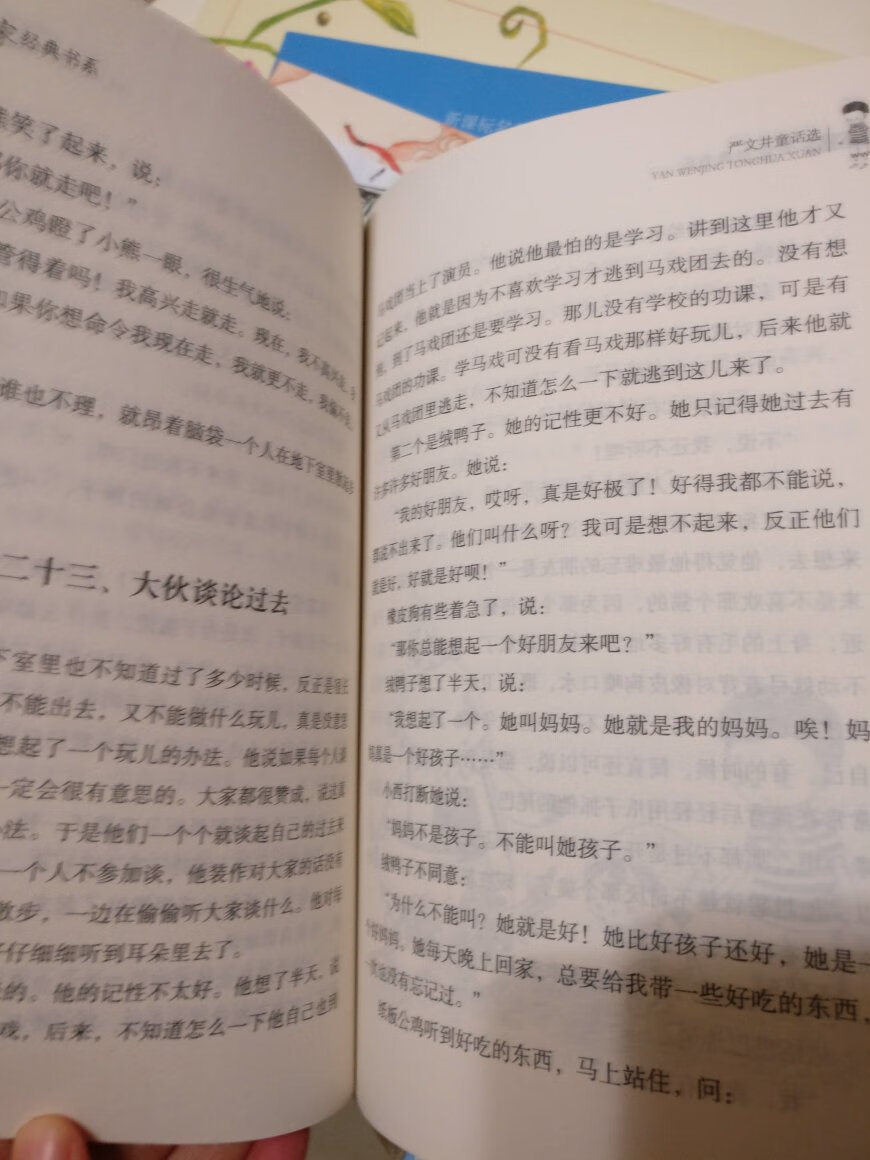 经典书系
笑了起来，说：
你就走吧！”
公鸡瞪了小熊一眼，很生气地说：
管得着吗！我高兴走就走。现在，我不高兴走，
如果你想命令我现在走，我就更不走，我偏不走。
谁也不理，就昂着脑袋一个人在地下室里
二十三、大伙谈论过去
下室里也不知道过了多少时候，反正是很长
不能出去，又不能做什么玩儿，真是没意思
想起了一个玩儿的办法。他说如果每个人谈
一定会很有意思的。大家都很赞成，说这真
办法。于是他们一个个就谈起自己的过去来
一个人不参加谈，他装作对大家的话没有
散步，一边在偷偷听大家谈什么。他对每
仔仔细细听到耳朵里去了。
的。他的记性不太好。他想了半天，说
戏，后来，不知道怎么一下他自己也到
新课标
严文井童话选
YAN WENJING TONGHUA XUAN
马戏团当上了演员。他说他最怕的是学习。讲到这里他才又
记起来，他就是因为不喜欢学习才逃到马戏团去的。没有想
到，到了马戏团还是要学习。那儿没有学校的功课，可是有
马戏团的功课。学马戏可没有看马戏那样好玩儿，后来他就
又从马戏团里逃走，不知道怎么一下就逃到这儿来了。
第二个是绒鸭子。她的记性更不好。她只记得她过去有
许多许多好朋友。她说：
“我的好朋友，哎呀，真是好极了！好得我都不能说，
都说不出来了。他们叫什么呀？我可是想不起来，反正他们
就是好，好就是好呗！”
橡皮狗有些着急了，说：
“那你总能想起一个好朋友来吧？”
绒鸭子想了半天，说：
“我想起了一个。她叫妈妈。她就是我的妈妈。唉！妈
妈真是一个好孩子……”
小西打断她说：
“妈妈不是孩子。不能叫她孩子。”
绒鸭子不同意：
“为什么不能叫？她就是好！她比好孩子还好，她是一
个好妈妈。她每天晚上回家，总要给我带一些好吃的东西，
一次也没有忘记过。”
纸板公鸡听到好吃的东西，马上站住，问：